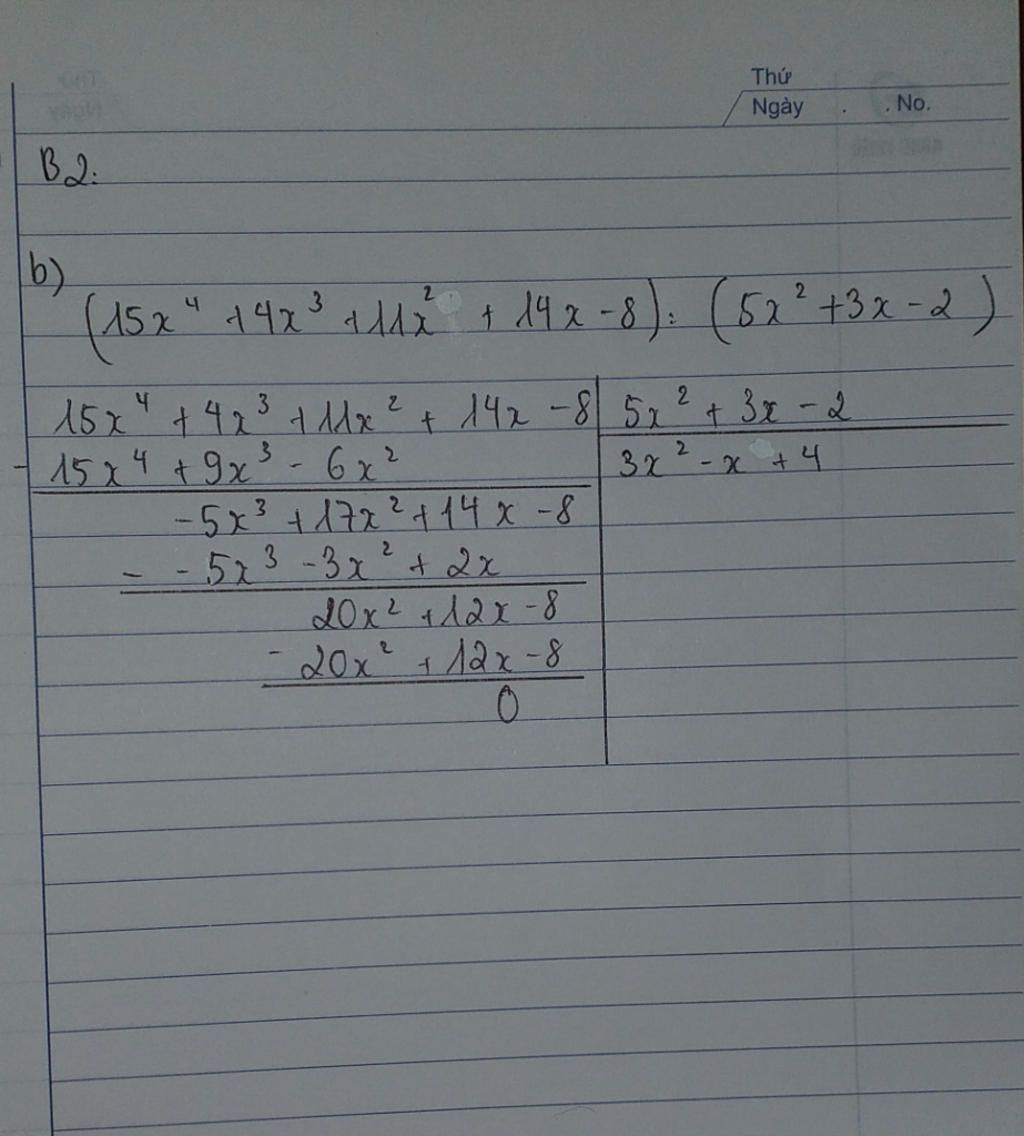 Thứ
Ngày . . No.
B2:
b)
(15x⁴ + 4x³ + 11x² + 14x - 8) : (5x² + 3x - 2)
15x⁴ + 4x³ + 11x² + 14x - 8 | 5x² + 3x - 2
- 15x⁴ + 9x³ - 6x² | 3x² - x + 4
-5x³ + 17x² + 14x - 8
- -5x³ - 3x² + 2x
20x² + 12x - 8
- 20x² + 12x - 8
0